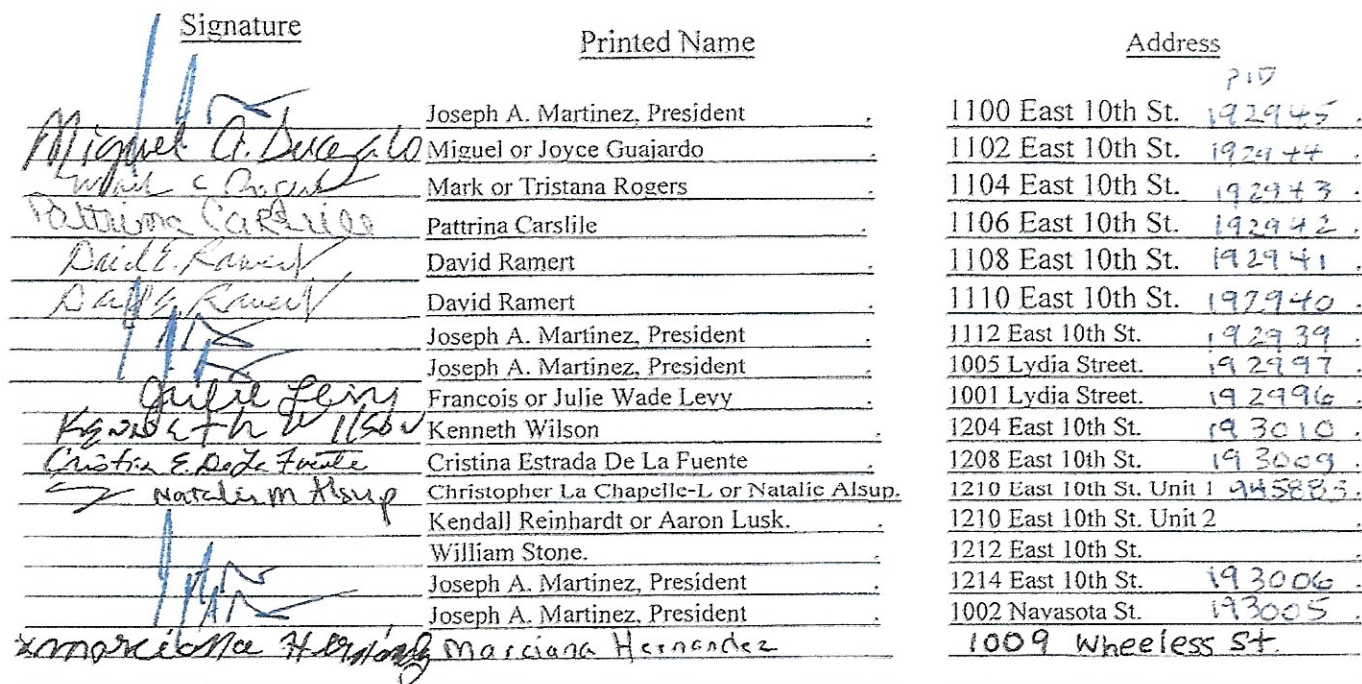 Signature Printed Name Address
PID
Joseph A. Martinez, President . 1100 East 10th St. 192945 .
Miguel or Joyce Guajardo . 1102 East 10th St. 192944 .
Mark or Tristana Rogers . 1104 East 10th St. 192943 .
Pattrina Carslile Pattrina Carslile . 1106 East 10th St. 192942 .
David E. Ramert David Ramert . 1108 East 10th St. 192941 .
David E. Ramert David Ramert . 1110 East 10th St. 192940 .
Joseph A. Martinez, President . 1112 East 10th St. 192939 .
Joseph A. Martinez, President . 1005 Lydia Street. 192997 .
Julie Levy Francois or Julie Wade Levy . 1001 Lydia Street. 192996 .
Kenneth Wilson Kenneth Wilson . 1204 East 10th St. 193010 .
Cristina E. De La Fuente Cristina Estrada De La Fuente . 1208 East 10th St. 193009 .
Natalie M Alsup Christopher La Chapelle-L or Natalie Alsup. 1210 East 10th St. Unit 1 945883 .
Kendall Reinhardt or Aaron Lusk. . 1210 East 10th St. Unit 2 .
William Stone. . 1212 East 10th St. .
Joseph A. Martinez, President . 1214 East 10th St. 193006 .
Joseph A. Martinez, President . 1002 Navasota St. 193005 .
x Marciana Hernandez Marciana Hernandez 1009 Wheeless St.